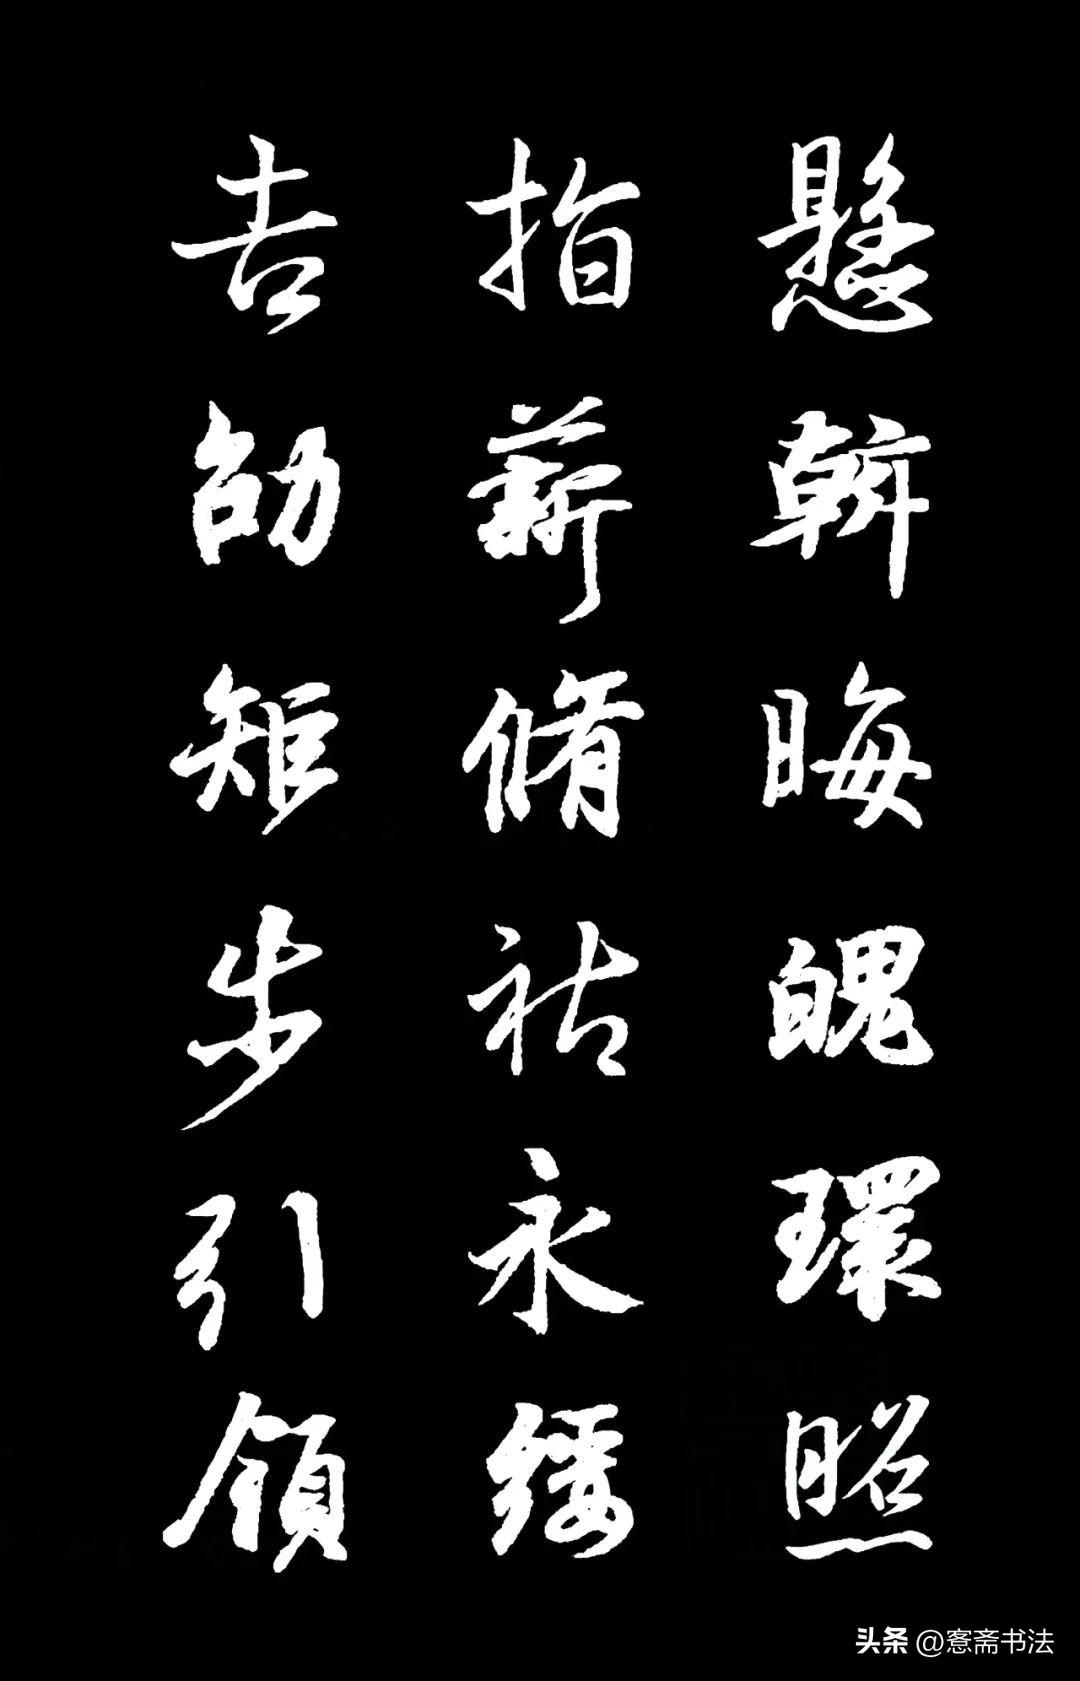 懸斡晦魄環照
指薪脩祜永綏
吉劭矩步引領
头条 @愙斋书法